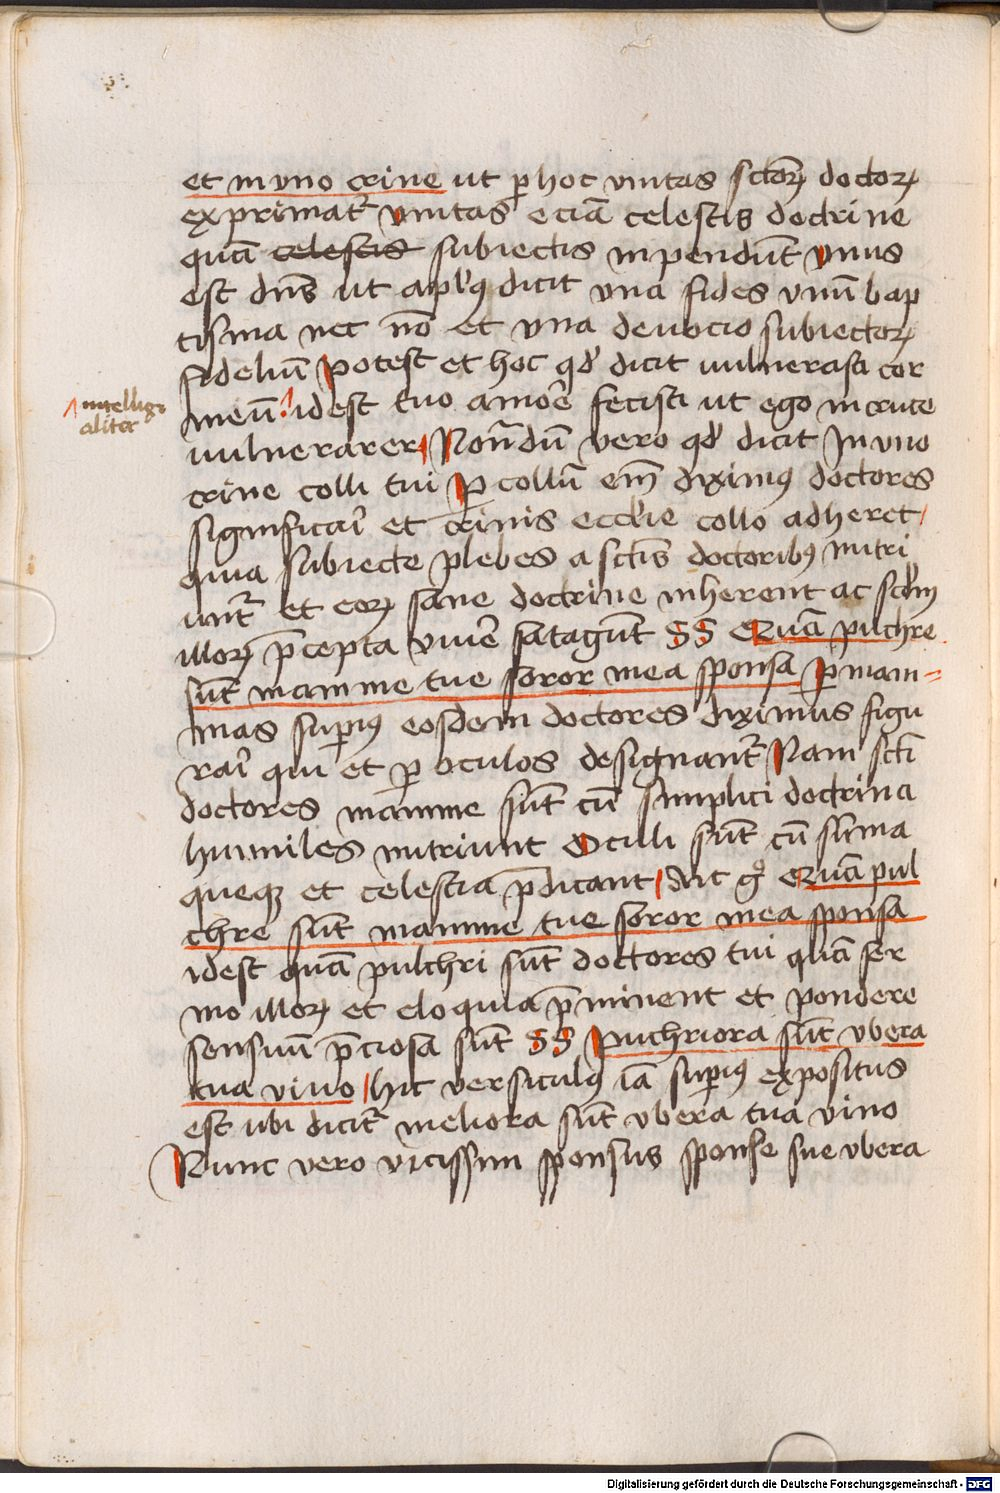 et in vno crine ut ꝑ hoc vnitas sctōꝝ doctoꝝ
exprimat᷑ vnitas eciā celestis doctrine
quā celestis subiectis inpendūt vnus
est dn̄s ut apl'ꝯ dicit vna fides vnū bap
tisma nec nō et vna deuocio subiectoꝝ
fideliū Potest et hoc qd' dicit uulnerasti cor
meū idest tuo amor̄e fecisti ut ego in cruce
intelligi
aliter
uulnerarer Non̄dū vero qd' dicit In vno
crine colli tui Per collū em̄ diximꝯ doctores
significari et crinis eccl'ie collo adheret
quia subiecte plebes a sctīs doctoribꝯ nutri
unt᷑ et eoꝝ sane doctrine inherent ac scd'm
illoꝝ p̄cepta viuer̄e satagūt §§ Quā pulchre
sūt mamme tue soror mea sponsa Per mam=
mas suꝑiꝯ eosdem doctores diximus figu
rari qui et ꝑ oculos designant᷑ Nam sctī
doctores mamme sūt cū simplici doctrina
humiles nutriunt Oculi sūt cū sūma
queqꝫ et celestia p̄dicant dic̄ gͦ Quā pul
chre sūt mamme tue soror mea sponsa
idest quā pulchri sūt doctores tui quā ser
mo illoꝝ et eloquia p̄minent et pondere
sensuū p̄ciosa sūt §§ Pulchriora sūt vbera
tua vino hic versiculꝯ iā suꝑiꝯ expositus
est ubi dicit᷑ meliora sūt vbera tua vino
Nunc vero vicissim sponsus sponse sue vbera
Digitalisierung gefördert durch die Deutsche Forschungsgemeinschaft - DFG